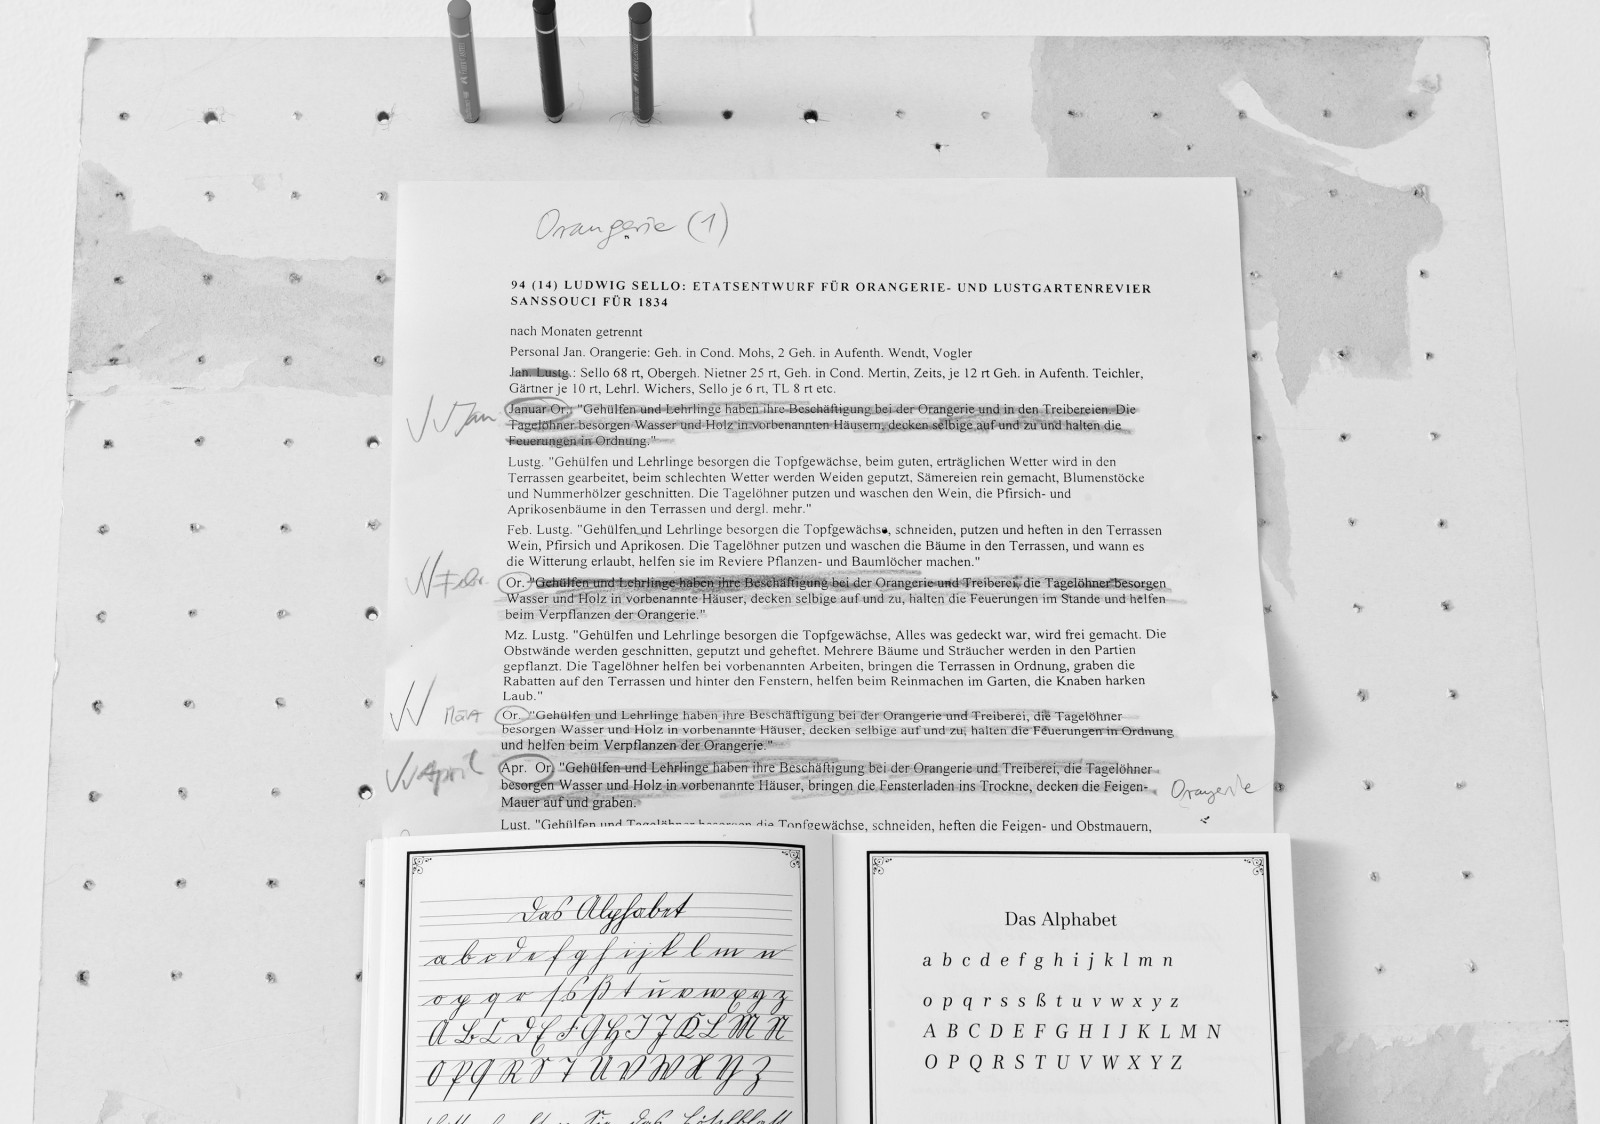 Orangerie (1)
94 (14) LUDWIG SELLO: ETATSENTWURF FÜR ORANGERIE- UND LUSTGARTENREVIER
SANSSOUCI FÜR 1834
nach Monaten getrennt
Personal Jan. Orangerie: Geh. in Cond. Mohs, 2 Geh. in Aufenth. Wendt, Vogler
Jan. Lustg.: Sello 68 rt, Obergeh. Nietner 25 rt, Geh. in Cond. Mertin, Zeits, je 12 rt Geh. in Aufenth. Teichler,
Gärtner je 10 rt, Lehrl. Wichers, Sello je 6 rt, TL 8 rt etc.
Jan Januar Or.: "Gehülfen und Lehrlinge haben ihre Beschäftigung bei der Orangerie und in den Treibereien. Die
Tagelöhner besorgen Wasser und Holz in vorbenannten Häusern, decken selbige auf und zu und halten die
Feuerungen in Ordnung."
Lustg. "Gehülfen und Lehrlinge besorgen die Topfgewächse, beim guten, erträglichen Wetter wird in den
Terrassen gearbeitet, beim schlechten Wetter werden Weiden geputzt, Sämereien rein gemacht, Blumenstöcke
und Nummerhölzer geschnitten. Die Tagelöhner putzen und waschen den Wein, die Pfirsich- und
Aprikosenbäume in den Terrassen und dergl. mehr."
Feb. Lustg. "Gehülfen und Lehrlinge besorgen die Topfgewächse, schneiden, putzen und heften in den Terrassen
Wein, Pfirsich und Aprikosen. Die Tagelöhner putzen und waschen die Bäume in den Terrassen, und wann es
die Witterung erlaubt, helfen sie im Reviere Pflanzen- und Baumlöcher machen."
Febr. Or. "Gehülfen und Lehrlinge haben ihre Beschäftigung bei der Orangerie und Treiberei, die Tagelöhner besorgen
Wasser und Holz in vorbenannte Häuser, decken selbige auf und zu, halten die Feuerungen im Stande und helfen
beim Verpflanzen der Orangerie."
Mz. Lustg. "Gehülfen und Lehrlinge besorgen die Topfgewächse, Alles was gedeckt war, wird frei gemacht. Die
Obstwände werden geschnitten, geputzt und geheftet. Mehrere Bäume und Sträucher werden in den Partien
gepflanzt. Die Tagelöhner helfen bei vorbenannten Arbeiten, bringen die Terrassen in Ordnung, graben die
Rabatten auf den Terrassen und hinter den Fenstern, helfen beim Reinmachen im Garten, die Knaben harken
Laub."
März Or. "Gehülfen und Lehrlinge haben ihre Beschäftigung bei der Orangerie und Treiberei, die Tagelöhner
besorgen Wasser und Holz in vorbenannte Häuser, decken selbige auf und zu, halten die Feuerungen in Ordnung
und helfen beim Verpflanzen der Orangerie."
April Apr. Or. "Gehülfen und Lehrlinge haben ihre Beschäftigung bei der Orangerie und Treiberei, die Tagelöhner
besorgen Wasser und Holz in vorbenannte Häuser, bringen die Fensterladen ins Trockne, decken die Feigen- Orangerie
Mauer auf und graben.
Lust. "Gehülfen und Tagelöhner besorgen die Topfgewächse, schneiden, heften die Feigen- und Obstmauern,
Das Alphabet
a b c d e f g h i j k l m n
o p q r s s ß t u v w x y z
A B C D E F G H I J K L M N
O P Q R S T U V W X Y Z
Das Alphabet
a b c d e f g h i j k l m n
o p q r s s ß t u v w x y z
A B C D E F G H I J K L M N
O P Q R S T U V W X Y Z